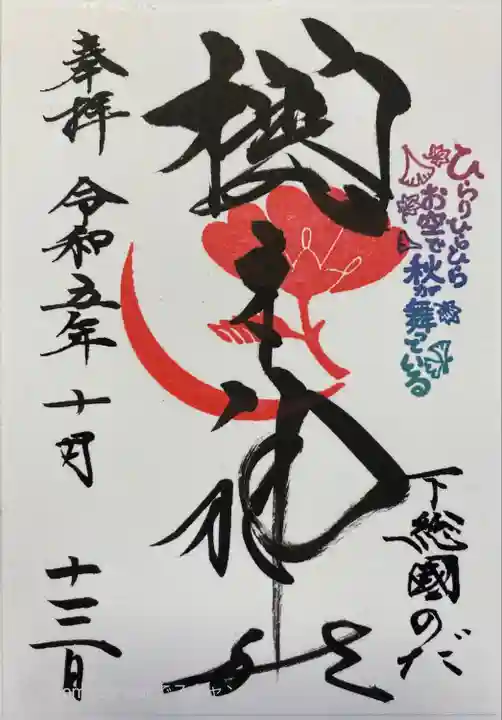 ひらりひらひら
お空で
秋が
舞っている
下総國のだ
櫻木神社
奉拝 令和五年 十月 十三日